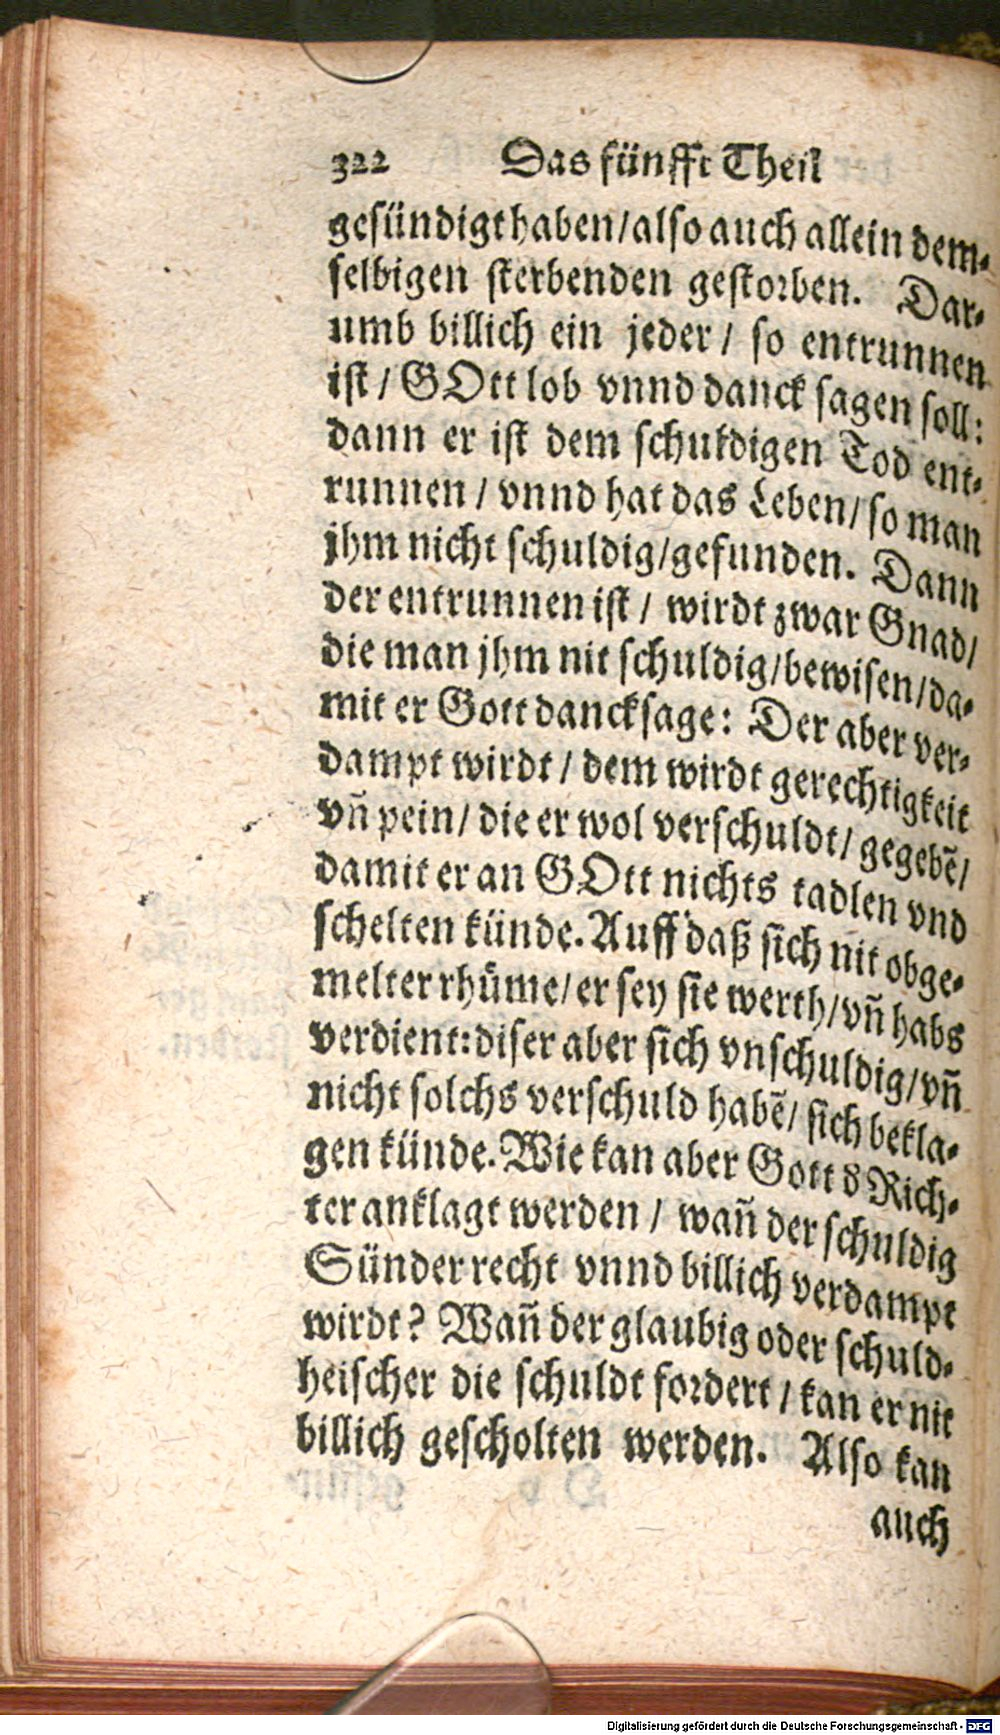 322 Das fünfft Theil
gesündigt haben/also auch allein dem-
selbigen sterbenden gestorben. Dar-
umb billich ein jeder/ so entrunnen
ist/ GOtt lob vnnd danck sagen soll:
dann er ist dem schuldigen Tod ent-
runnen/ vnnd hat das Leben/ so man
jhm nicht schuldig/gefunden. Dann
der entrunnen ist/ wirdt zwar Gnad/
die man jhm nit schuldig/bewisen/da-
mit er Gott dancksage: Der aber ver-
dampt wirdt/ dem wirdt gerechtigkeit
vñ pein/ die er wol verschuldt/ gegebẽ/
damit er an GOtt nichts tadlen vnd
schelten künde. Auff daß sich nit obge-
melter rhüme/ er sey sie werth/vñ habs
verdient: diser aber sich vnschuldig/vñ
nicht solchs verschuld habẽ/ sich bekla-
gen künde. Wie kan aber Gott d Rich-
ter anklagt werden/ wañ der schuldig
Sünder recht vnnd billich verdampt
wirdt? Wañ der glaubig oder schuld-
heischer die schuldt fordert/ kan er nit
billich gescholten werden. Also kan
auch
Digitalisierung gefördert durch die Deutsche Forschungsgemeinschaft - DFG